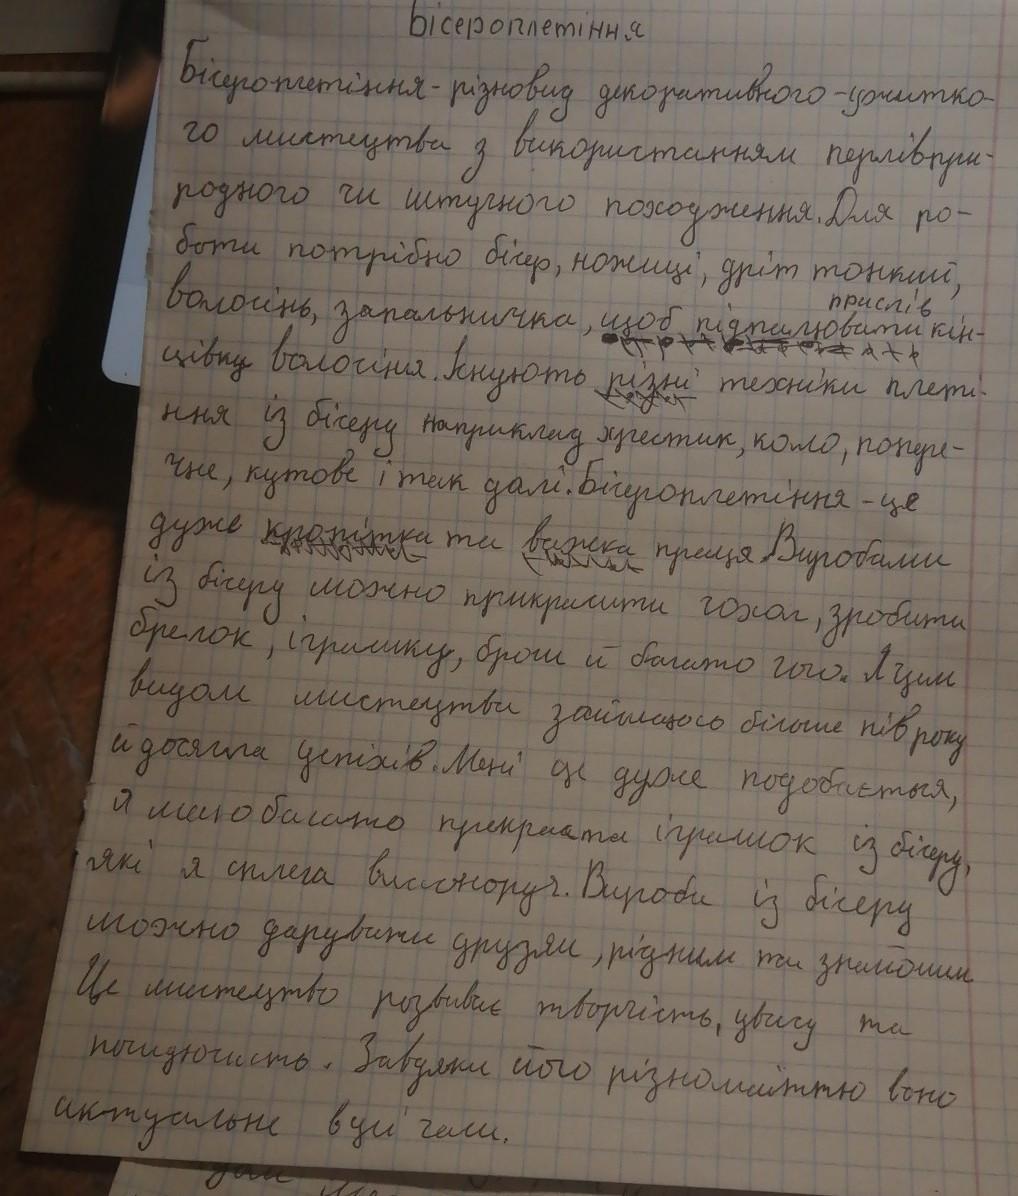 Бісероплетіння
Бісероплетіння - різновид декоративного - ужитко-
го мистецтва з використанням перлів при-
родного чи штучного походження. Для ро-
боти потрібно бісер, ножиці, дріт тонкий,
прислів
волосінь, запальничка, щоб підпалювати кін-
цівку волосіня. Існують різні техніки плеті-
ння із бісеру наприклад хрестик, коло, попере-
чне, кутове і так далі. Бісероплетіння - це
дуже кропітка та важка праця. Виробами
із бісеру можно прикрасити чохол, зробити
брелок, іграшку, брош й багато чого. Я цим
видом мистецтва займаюсь більше пів року
й досягла успіхів. Мені це дуже подобається,
я маю багато іграшок із бісеру,
які я сплела власноруч. Вироби із бісеру
можно дарувати друзям, рідним та знайомим
Це мистецтво розвиває творчість, увагу та
Завдяки його різномаїттю воно
актуальне в цей час.